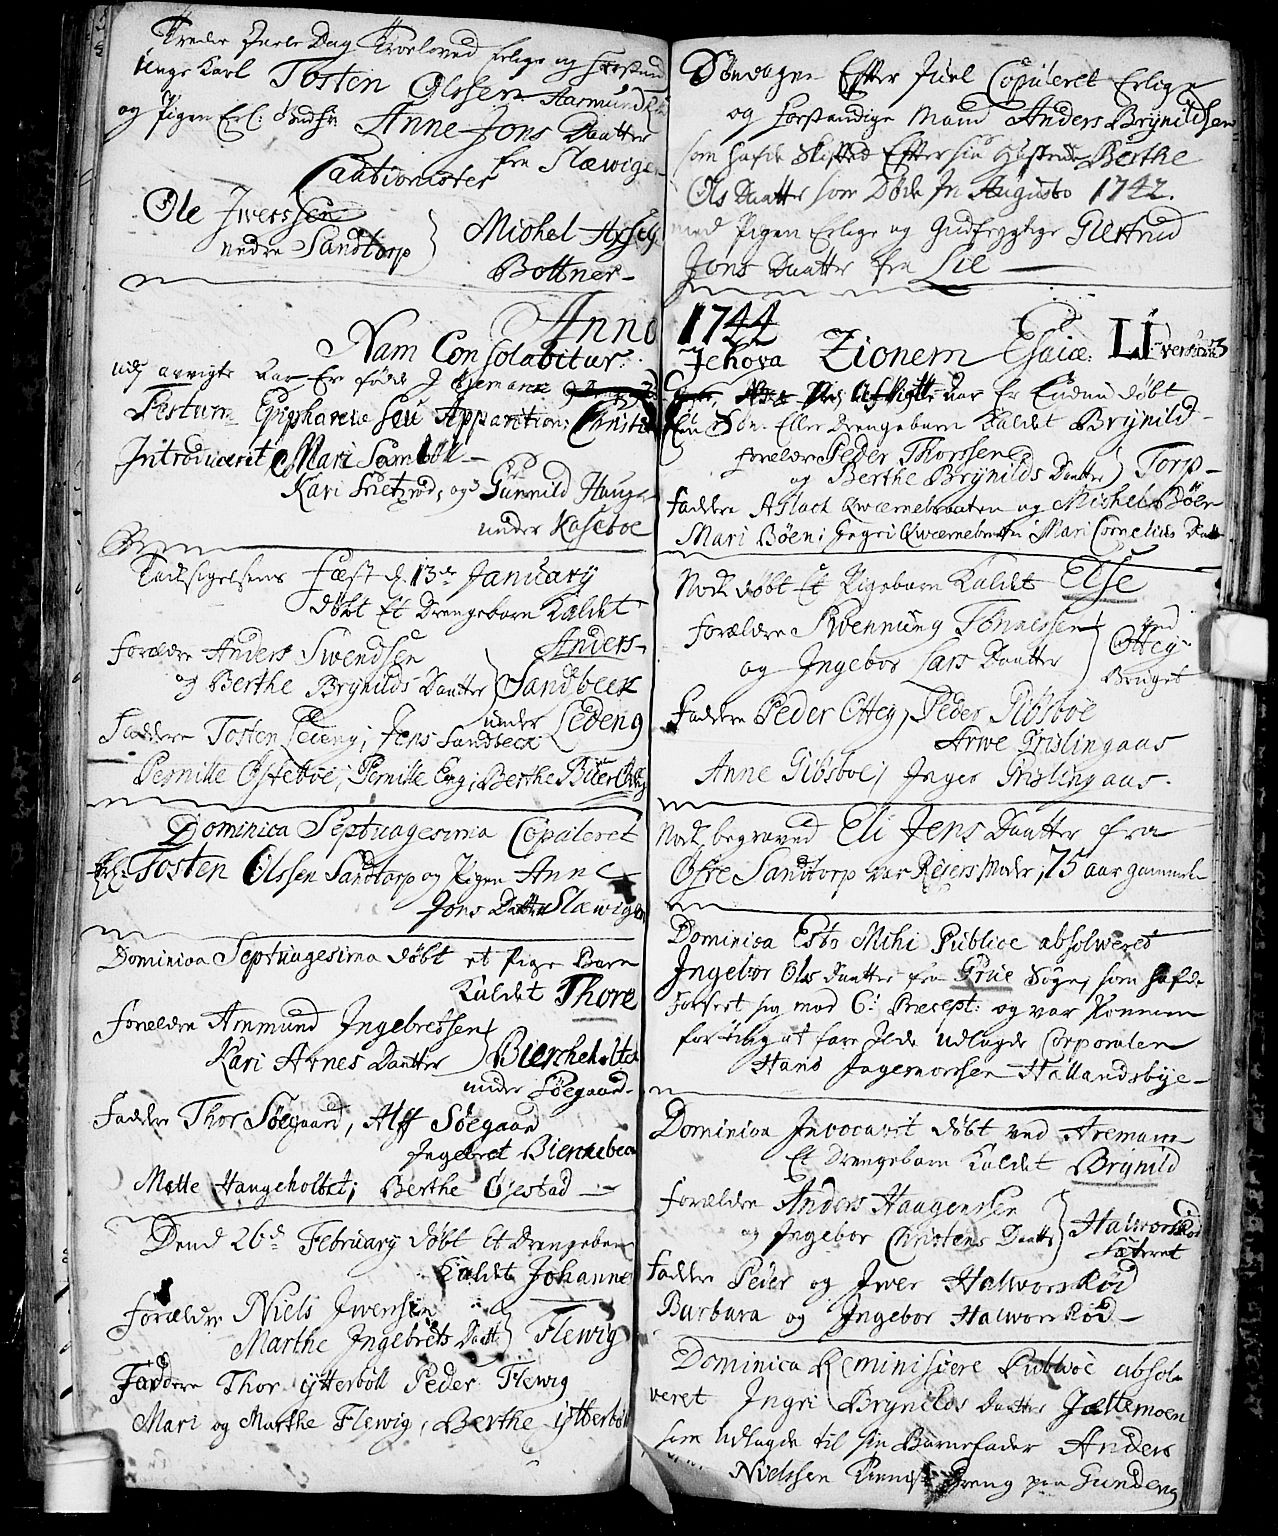 Tredie Juele Dag Troeloved Erlige og
unge Karl Tosten Olssen Aasmund
og Pigen Erl: Anne Jons Daatter
fra Slæwigen
Cautionister
Ole Jwerssen
nedre Sandtorp
Michel
Bottner
Anno
Nam Consolabitur
udj Aar Er føde J
Festum Epiphaniæ seu Apparition: Christi
Introduceret Mari
Kari og Gunnild Haugen
under Kaseboe
Taksigelsens Fæst d. 13de January
døbt Et Drengebarn Kaldet
Anders
Forældre Anders Swendsen
og Berthe Brynilds Daatter Sandbeck
under Ledeng
Faddere Tosten Leeng, Jens Sandbeck
Pernille Østeboe, Pernille Eng, Berthe
Dominica Septuagesima Copuleret
Tosten Olssen Sandtorp og Pigen Anne
Jons Daatter Slæwigen
Dominica Septuagesima døbt et Pige Barn
Kaldet Thore
Forældre Ammund Ingebretssen
Kari Arnes Daatter Biercheholtet
under Søegaard
Faddere Thor Søegaard, Alff Søegaard
Ingebret
Mette Haugeholtet, Berthe Øiestad
Dend 26de February døbt Et Drengebarn
Kaldet Johanne
Forældre Niels Jwersen
Marthe Ingebrets Daatt: Flewig
Faddere Thor ytterbøll Peder Flewig
Mari og Marthe Flewig, Berthe ytterbøl
Søndagen Efter Juel Copuleret Erlige
og forstandige Mand Anders Brynildsen
som hafde Skifted Efter sin Hustrue Berthe
Ols Daatter som Døde In Augusto 1742.
med Pigen Erlige og Gudfrygtige Giertrud
Jons Daatter fra Lie
1744
Jehova Zionem Esaiæ LI vers: 3
Aar Er Endnu døbt
Een Søn Eller Drengebarn Kaldet Brynild
Forældre Peder Thorssen
og Berthe Brynilds Daatter Torp
Faddere Aslach Qwærnebraaten og Michel Bøen
Mari Bøen, Ingri Qwærnebraaten Mari Cornelius Daatt
Nok døbt Et Pigebarn Kaldet Else
Forældre Swennung Tønnessen ved
Ottey
og Ingebor Lars Daatter Bruget
Faddere Peder Ottey, Peder Gibsboe
Arwe Grislingaas
Anne Gibsboe, Inger Grislingaas.
Nok begraved Eli Jens Daatter fra
Øfre Sandtorp var Reiers Moder, 75 aar gammel
Dominica Esto Mihi Publice absolweret
Ingebor Ols Daatter fra Grue Sogn, som hafde
Forseet sig mod 6: Præcept: og var Kommen
for tilig at fare Ilde udlagde Corporalen
Hans Ingemorsen Hallandsbye
Dominica Invocavit døbt ved Aremark
Et Drengebarn Kaldet Brynild
Forældre Anders Haagenssen
og Ingebor Christens Daatt: Halworsrød
Sæteret
Faddere Peder og Jwer Halworsrød
Barbara og Ingebor Halworsrød
Dominica Reminiscere Publice absol-
veret Ingri Brynilds Daatter Jættemoen
som udlagde til sin Barnefader Anders
Nielssen Dreng paa Gundeng